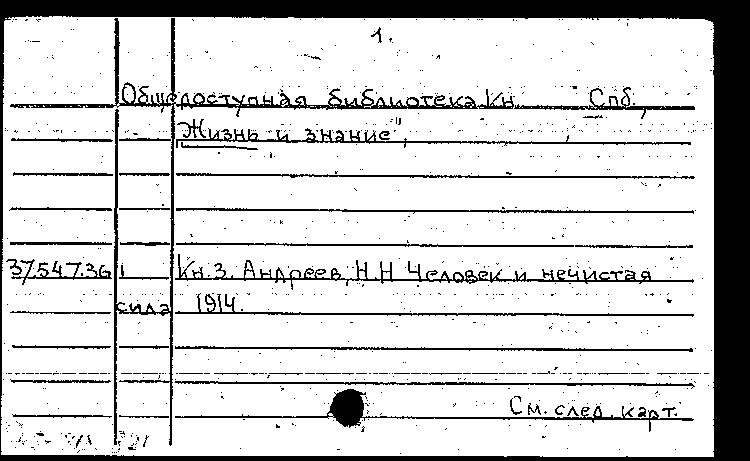 1.
Общедоступная библиотека Кн Спб.,
"Жизнь и знание",
37.54.7.36 Кн.3. Андреев, Н.Н Человек и нечистая
сила 1914.
См. след. карт.